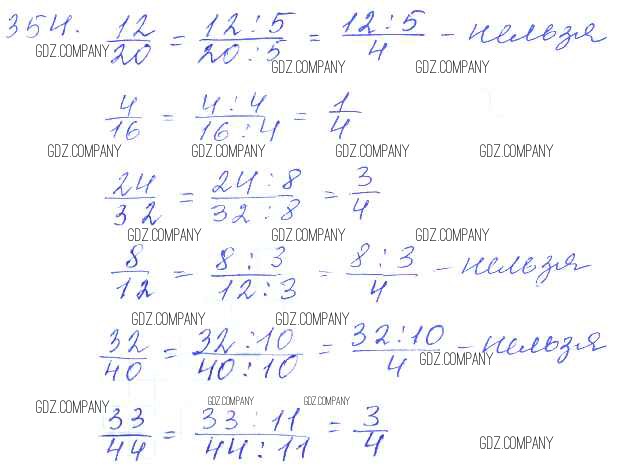 354. 12/20 = 12:5/20:5 = 12:5/4 - нельзя
GDZ.COMPANY GDZ.COMPANY GDZ.COMPANY
4/16 = 4:4/16:4 = 1/4
GDZ.COMPANY GDZ.COMPANY GDZ.COMPANY GDZ.COMPANY
24/32 = 24:8/32:8 = 3/4
GDZ.COMPANY GDZ.COMPANY GDZ.COMPANY
8/12 = 8:3/12:3 = 8:3/4 - нельзя
GDZ.COMPANY GDZ.COMPANY
32/40 = 32:10/40:10 = 32:10/4 - нельзя
GDZ.COMPANY
GDZ.COMPANY GDZ.COMPANY GDZ.COMPANY
33/44 = 33:11/44:11 = 3/4
GDZ.COMPANY